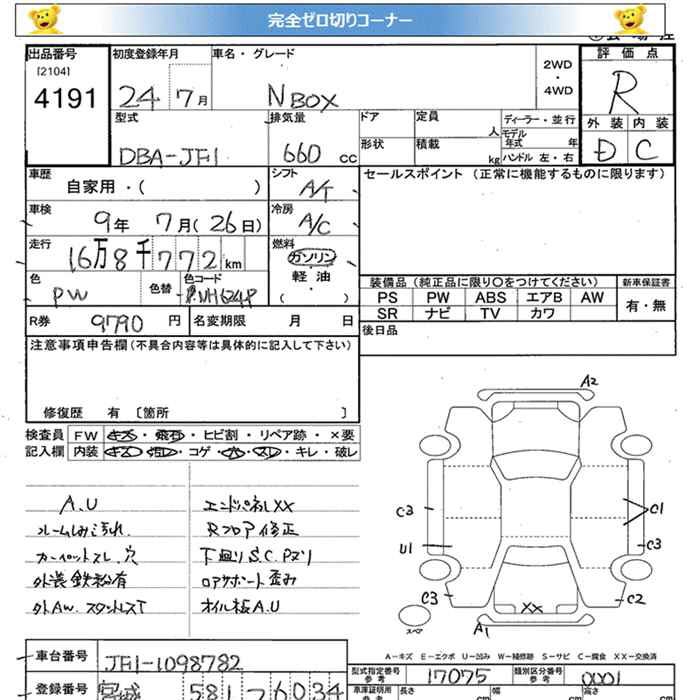 完全ゼロ切りコーナー
出品番号
[2104]
4191
初度登録年月
24 7月
車名・グレード
N BOX
2WD
・
4WD
評価点
R
外装 内装
D C
型式
DBA-JF1
排気量
660 cc
ドア
定員
人
ディーラー・並行
形状
積載
kg
モデル
年式 年
ハンドル 左・右
車歴
自家用・( )
シフト
A/T
セールスポイント (正常に機能するものに限ります)
車検
9年 7月(26日)
冷房
A/C
走行
16万8千772km
燃料
ガソリン
軽油
( )
色
PW
色替
色コード
装備品 (純正品に限り〇をつけてください)
新車保証書
PS PW ABS エアB AW
有・無
SR ナビ TV カワ
R券 9790 円
名変期限 月 日
後日品
注意事項申告欄(不具合内容等は具体的に記入して下さい)
修復歴 有 〔箇所 〕
検査員
記入欄
FW キズ・飛石・ヒビ割・リペア跡・×要
内装 キズ・汚レ・コゲ・穴・スレ・キレ・破レ
A.U
ルームしみ汚れ
カーペットスレ.穴
外装鉄粉有
外AW.スタットレスT
エンドパネルXX
Rフロア修正
下廻りS.C.Pスリ
ロアサポート歪み
オイル板A.U
A2
C2
C1
U1
C3
C3
C2
XX
A1
スペア
A－キズ E－エクボ U－凹み W－補修跡 S－サビ C－腐食 XX－交換済
車台番号
JF1-1098782
型式指定番号
参考
17075
類別区分番号
参考
0001
登録番号
宮城 581 76034
車庫証明用
参考
長さ cm
幅 cm
高さ cm